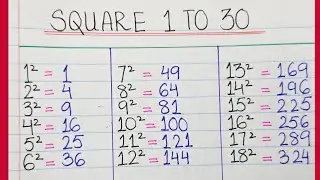 SQUARE 1 TO 30
1² = 1
2² = 4
3² = 9
4² = 16
5² = 25
6² = 36
7² = 49
8² = 64
9² = 81
10² = 100
11² = 121
12² = 144
13² = 169
14² = 196
15² = 225
16² = 256
17² = 289
18² = 324